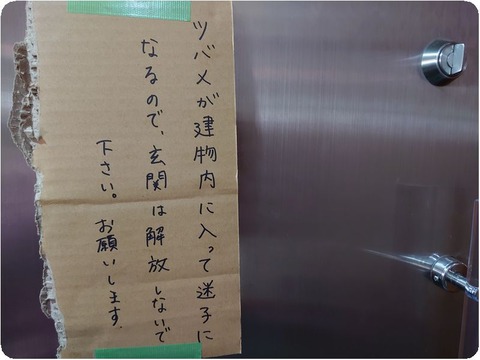 ツバメが建物内に入って迷子に
なるので、玄関は解放しないで
下さい。お願いします.